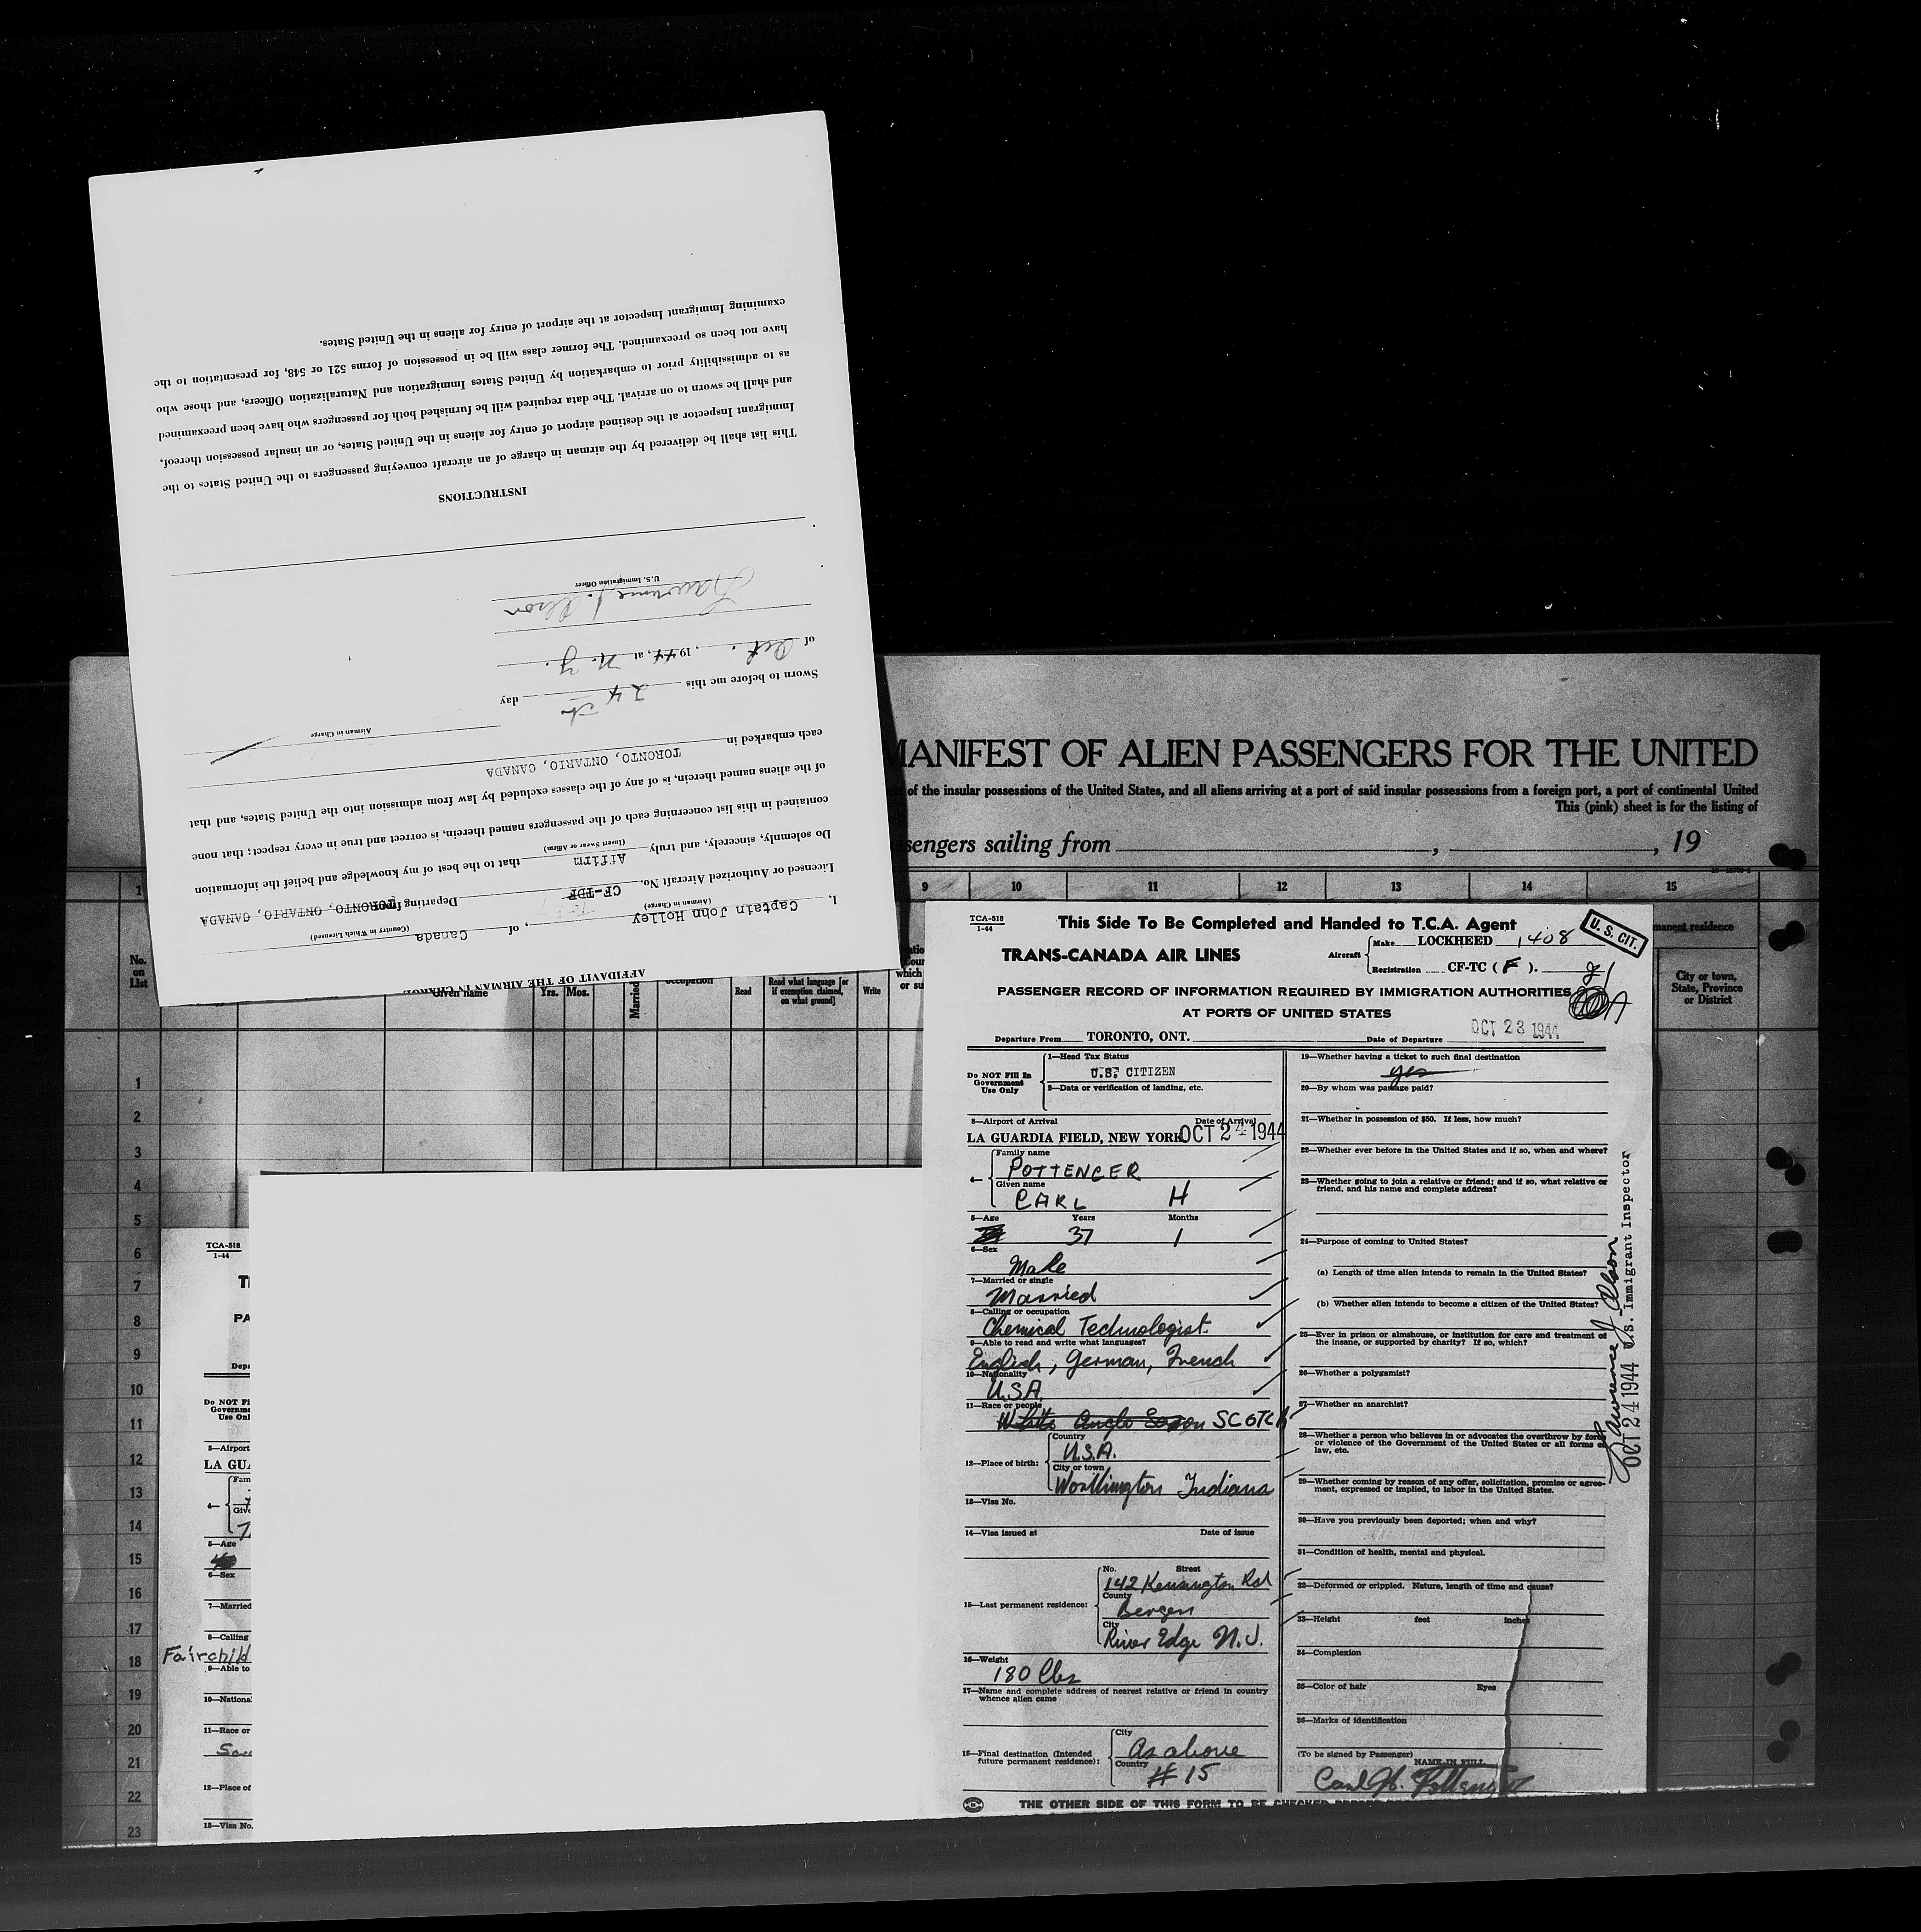 AFFIDAVIT OF THE AIRMAN IN CHARGE
I, Captain John Holley, of Canada
(Airman in Charge) (Country in Which Licensed)
Licensed or Authorized Aircraft No. CF-TDF Departing from TORONTO, ONTARIO, CANADA
Do solemnly, sincerely, and truly Affirm that to the best of my knowledge and belief the information
(Insert Swear or Affirm)
contained in this list concerning each of the passengers named therein, is correct and true in every respect; that none
of the aliens named therein, is of any of the classes excluded by law from admission into the United States, and that
each embarked in TORONTO, ONTARIO, CANADA
Airman in Charge
Sworn to before me this 24th day
of Oct., 1944, at N.Y.
Lawrence J. Olson
U.S. Immigration Officer
INSTRUCTIONS
This list shall be delivered by the airman in charge of an aircraft conveying passengers to the United States to the
Immigrant Inspector at the destined airport of entry for aliens in the United States, or an insular possession thereof,
and shall be sworn to on arrival. The data required will be furnished both for passengers who have been preexamined
as to admissibility prior to embarkation by United States Immigration and Naturalization Officers, and those who
have not been so preexamined. The former class will be in possession of forms 521 or 548, for presentation to the
examining Immigrant Inspector at the airport of entry for aliens in the United States.
MANIFEST OF ALIEN PASSENGERS FOR THE UNITED
of the insular possessions of the United States, and all aliens arriving at a port of said insular possessions from a foreign port, a port of continental United
This (pink) sheet is for the listing of
sengers sailing from , , 19
1 9 10 11 12 13 14 15
No. on List
Given name
Yrs. Mos.
Married
occupation
Read
Read what language [or if exemption claimed, on what ground]
Write
which
or su
manent residence
City or town, State, Province or District
1
2
3
4
5
6
7
8
9
10
11
12
13
14
15
16
17
18
19
20
21
22
23
TCA-518
1-44
PA
Depa
Do NOT Fi
Governme
Use Onl
3—Airport
LA GUA
Fam
4—
Give
5—Age
6—Sex
7—Married
8—Calling
Fairchild
9—Able to
10—National
11—Race or
12—Place of
13—Visa No.
TCA-518
1-44
This Side To Be Completed and Handed to T.C.A. Agent
U. S. CIT.
TRANS-CANADA AIR LINES
Aircraft
Make LOCKHEED 1408
Registration CF-TC (F).
PASSENGER RECORD OF INFORMATION REQUIRED BY IMMIGRATION AUTHORITIES
AT PORTS OF UNITED STATES
Departure From TORONTO, ONT. Date of Departure OCT 23 1944
Do NOT Fill In
Government
Use Only
1—Head Tax Status
U.S. CITIZEN
2—Data or verification of landing, etc.
3—Airport of Arrival Date of Arrival
LA GUARDIA FIELD, NEW YORK OCT 24 1944
4—
Family name
POTTENGER
Given name
CARL H
5—Age Years Months
37 1
6—Sex
Male
7—Married or single
Married
8—Calling or occupation
Chemical Technologist.
9—Able to read and write what languages?
English, German, French
10—Nationality
U.S.A.
11—Race or people
White Anglo Saxon SCOTCH
12—Place of birth:
Country
U.S.A.
City or town
Worthington Indiana
13—Visa No.
14—Visa issued at Date of issue
15—Last permanent residence:
No. Street
142 Kensington Rd
County
Bergen
City
River Edge N.J.
16—Weight
180 lbs
17—Name and complete address of nearest relative or friend in country
whence alien came
18—Final destination (Intended
future permanent residence):
City
As above
Country
# 15
19—Whether having a ticket to such final destination
yes
20—By whom was passage paid?
21—Whether in possession of $50. If less, how much?
22—Whether ever before in the United States and if so, when and where?
23—Whether going to join a relative or friend; and if so, what relative or
friend, and his name and complete address?
24—Purpose of coming to United States?
(a) Length of time alien intends to remain in the United States?
(b) Whether alien intends to become a citizen of the United States?
25—Ever in prison or almshouse, or institution for care and treatment of
the insane, or supported by charity? If so, which?
26—Whether a polygamist?
27—Whether an anarchist?
28—Whether a person who believes in or advocates the overthrow by force
or violence of the Government of the United States or all forms of
law, etc.
29—Whether coming by reason of any offer, solicitation, promise or agree-
ment, expressed or implied, to labor in the United States.
30—Have you previously been deported; when and why?
31—Condition of health, mental and physical.
32—Deformed or crippled. Nature, length of time and cause?
33—Height feet inches
34—Complexion
35—Color of hair Eyes
36—Marks of identification
(To be signed by Passenger) NAME IN FULL
Carl H. Pottenger
Lawrence J. Olson
OCT 24 1944 U.S. Immigrant Inspector
THE OTHER SIDE OF THIS FORM TO BE CHECKED BEFORE